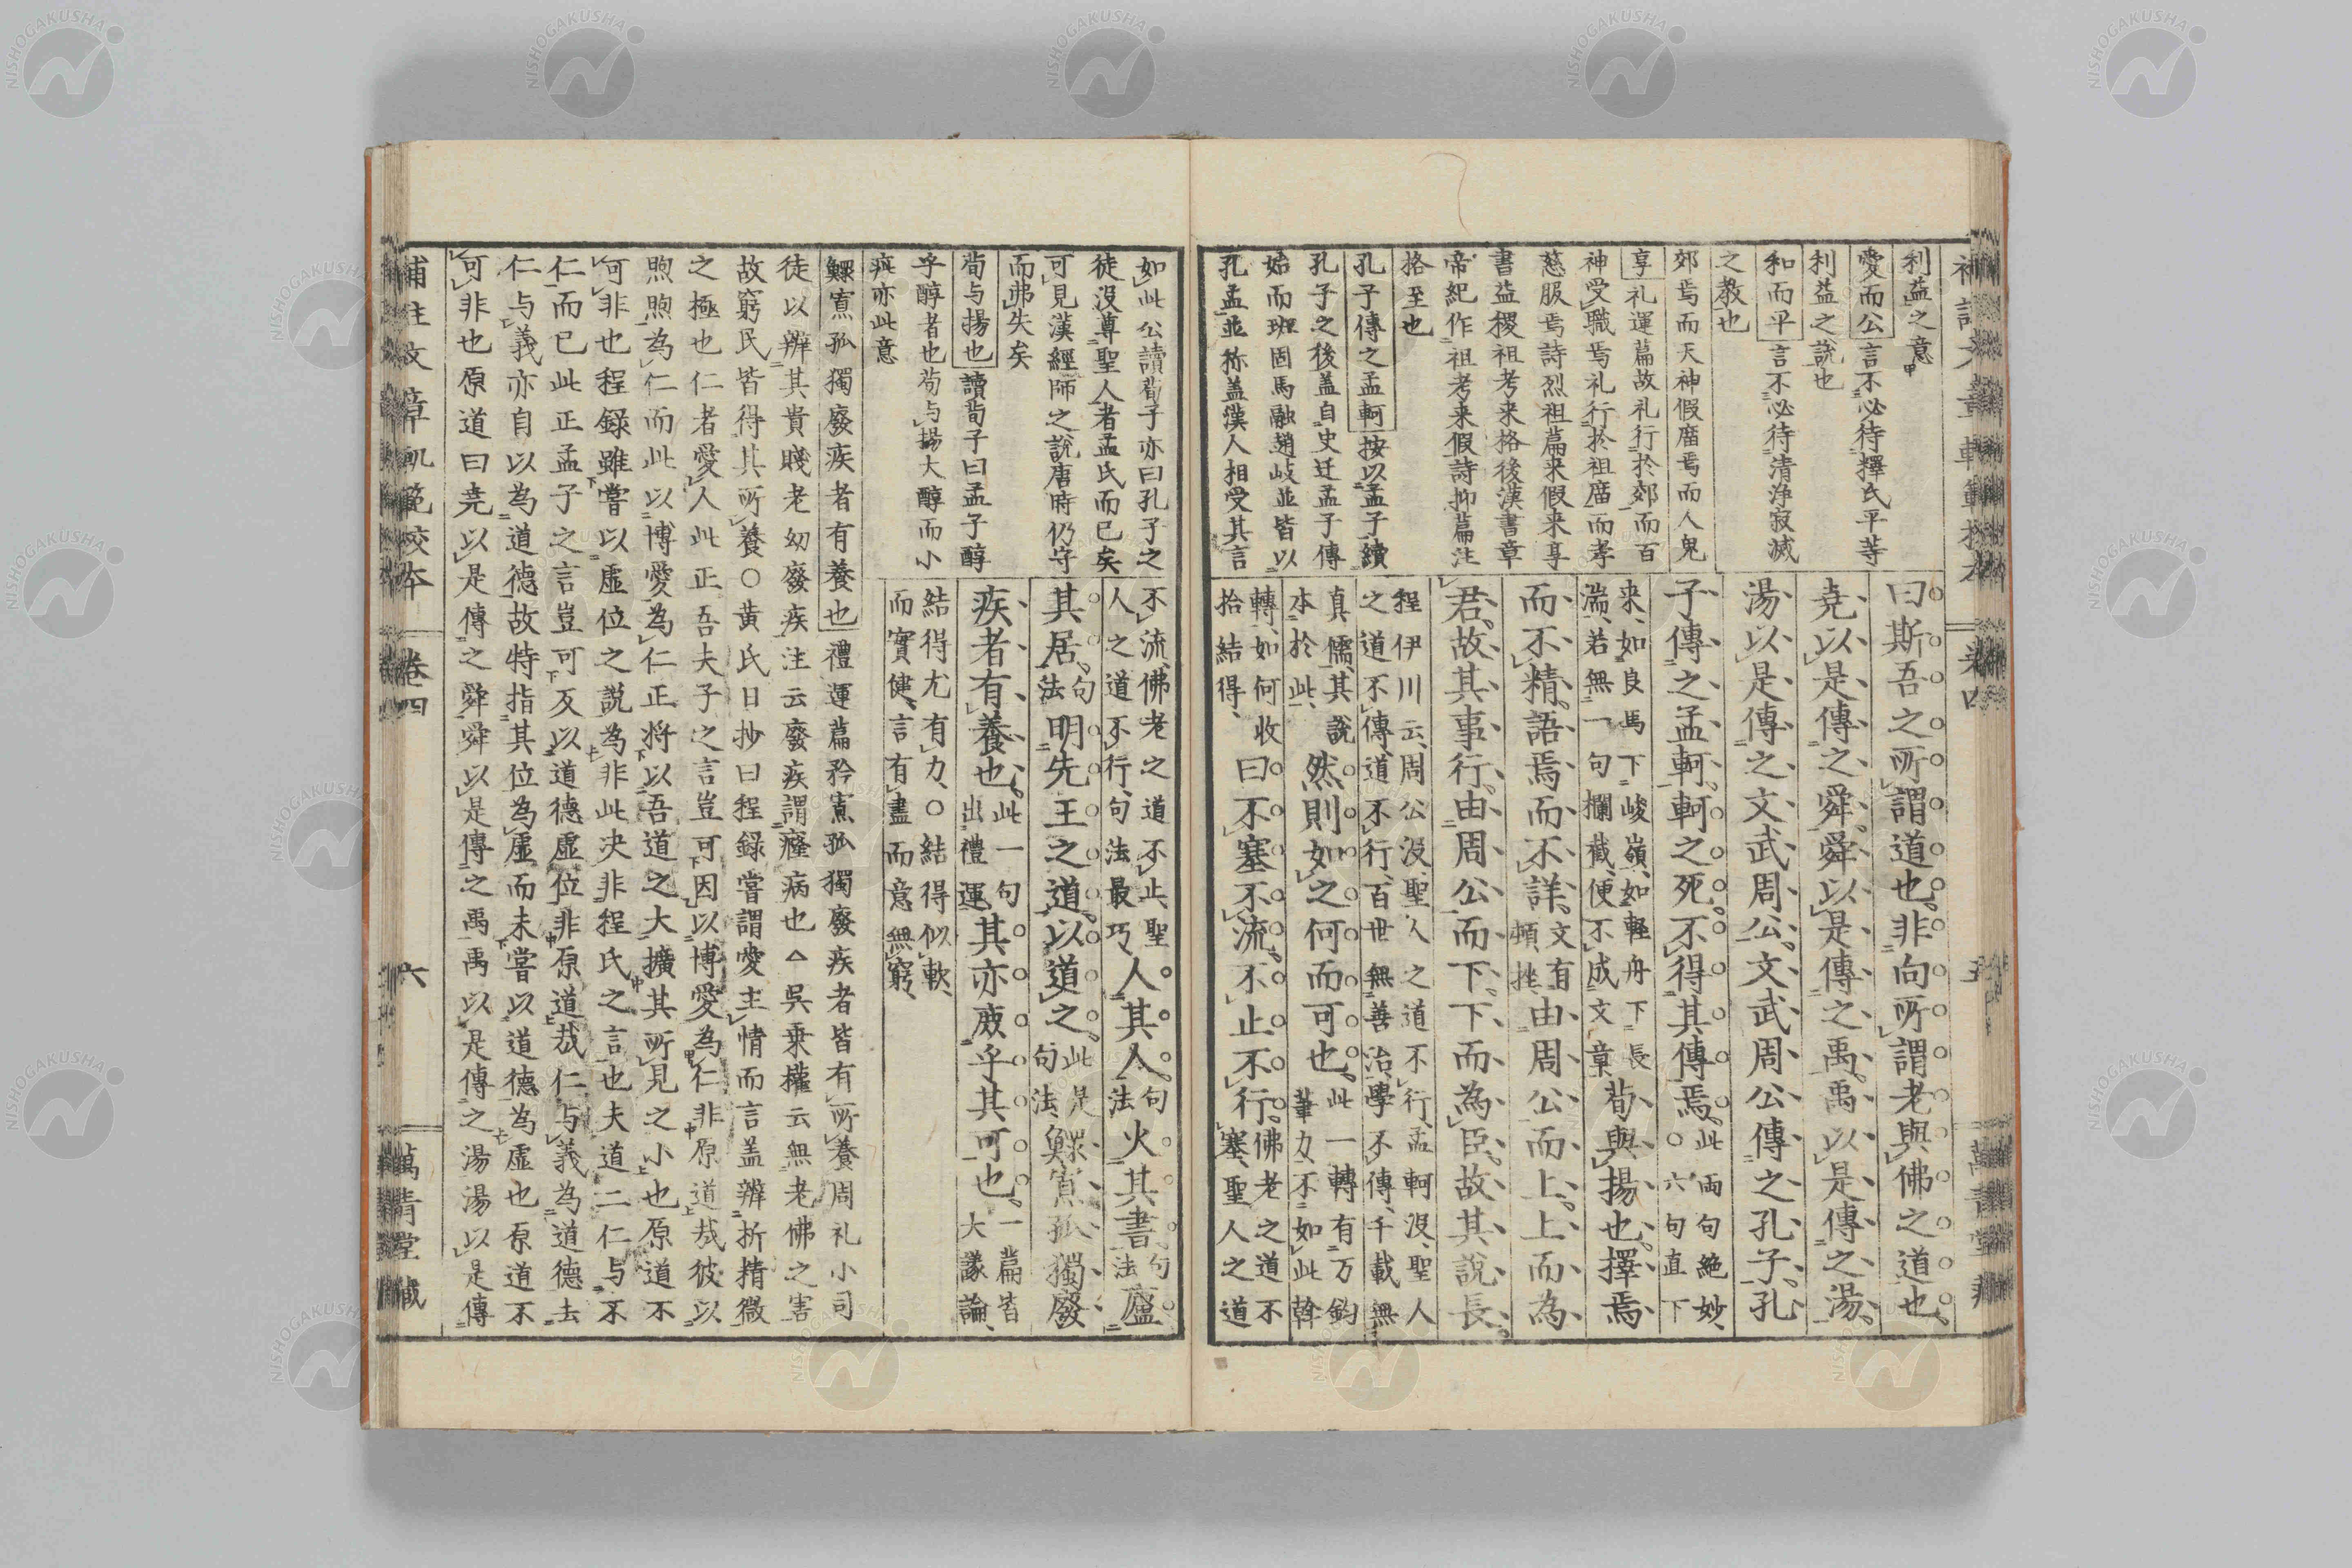 利益之意
愛而公言不必待釋氏平等
利益之說也
和而平言不必待清浄寂滅
之教也
郊焉而天神假廟焉而人鬼
享礼運篇故礼行於郊而百
神受職焉礼行於祖廟而孝
慈服焉詩烈祖篇来假来享
書益稷祖考来格後漢書章
帝紀作祖考来假詩抑篇注
格至也
孔子傳之孟軻按以孟子續
孔子之後盖自史迁孟子傳
始而班固馬融趙岐並皆以
孔孟並称盖漢人相受其言
曰斯吾之所謂道也非向所謂老與佛之道也
堯以是傳之舜舜以是傳之禹禹以是傳之湯
湯以是傳之文武周公文武周公傳之孔子孔
子傳之孟軻軻之死不得其傳焉此両句絶妙〇六句直下
来如良馬下峻嶺如輕舟下長
湍若無一句攔截便不成文章荀與揚也擇焉
而不精語焉而不詳文有頓挫由周公而上上而為
君故其事行由周公而下下而為臣故其說長
程伊川云周公没聖人之道不行孟軻没聖人
之道不傳道不行百世無善治學不傳千載無
真儒其說本於此然則如之何而可也此一轉有万鈞筆力不如此幹
轉如何收拾結得曰不塞不流不止不行佛老之道不塞聖人之道
不流佛老之道不止聖
人之道不行句法最巧人其人句法火其書句法廬
其居句法明先王之道以道之此是句法鰥寡孤獨廢
疾者有養也此一句出禮運其亦庶乎其可也一篇皆大議論
結得尤有力〇結得似軟
而實健言有盡而意無窮
如此公讀荀子亦曰孔子之
徒没尊聖人者孟氏而已矣
可見漢經師之說唐時仍守
而弗失矣
荀与揚也讀荀子曰孟子醇
乎醇者也荀与揚大醇而小
疵亦此意
鰥寡孤獨廢疾者有養也禮運篇矜寡孤獨廢疾者皆有所養周礼小司
徒以辨其貴賤老幼廢疾注云廢疾謂癃病也△吳乗權云無老佛之害
故窮民皆得其所養〇黄氏日抄曰程録嘗謂愛主情而言盖辨折精微
之極也仁者愛人此正吾夫子之言豈可因以博愛為仁非原道哉彼以
煦煦為仁而此以博愛為仁正將以吾道之大擴其所見之小也原道不
可非也程録雖嘗以虛位之說為非此决非程氏之言也夫道二仁与不
仁而已此正孟子之言豈可反以道德虛位非原道哉仁与義為道德去
仁与義亦自以為道德故特指其位為虛而未嘗以道德為虛也原道不
可非也原道曰堯以是傳之舜舜以是傳之禹禹以是傳之湯湯以是傳
補註文章軌範校本 卷四 六 萬青堂藏